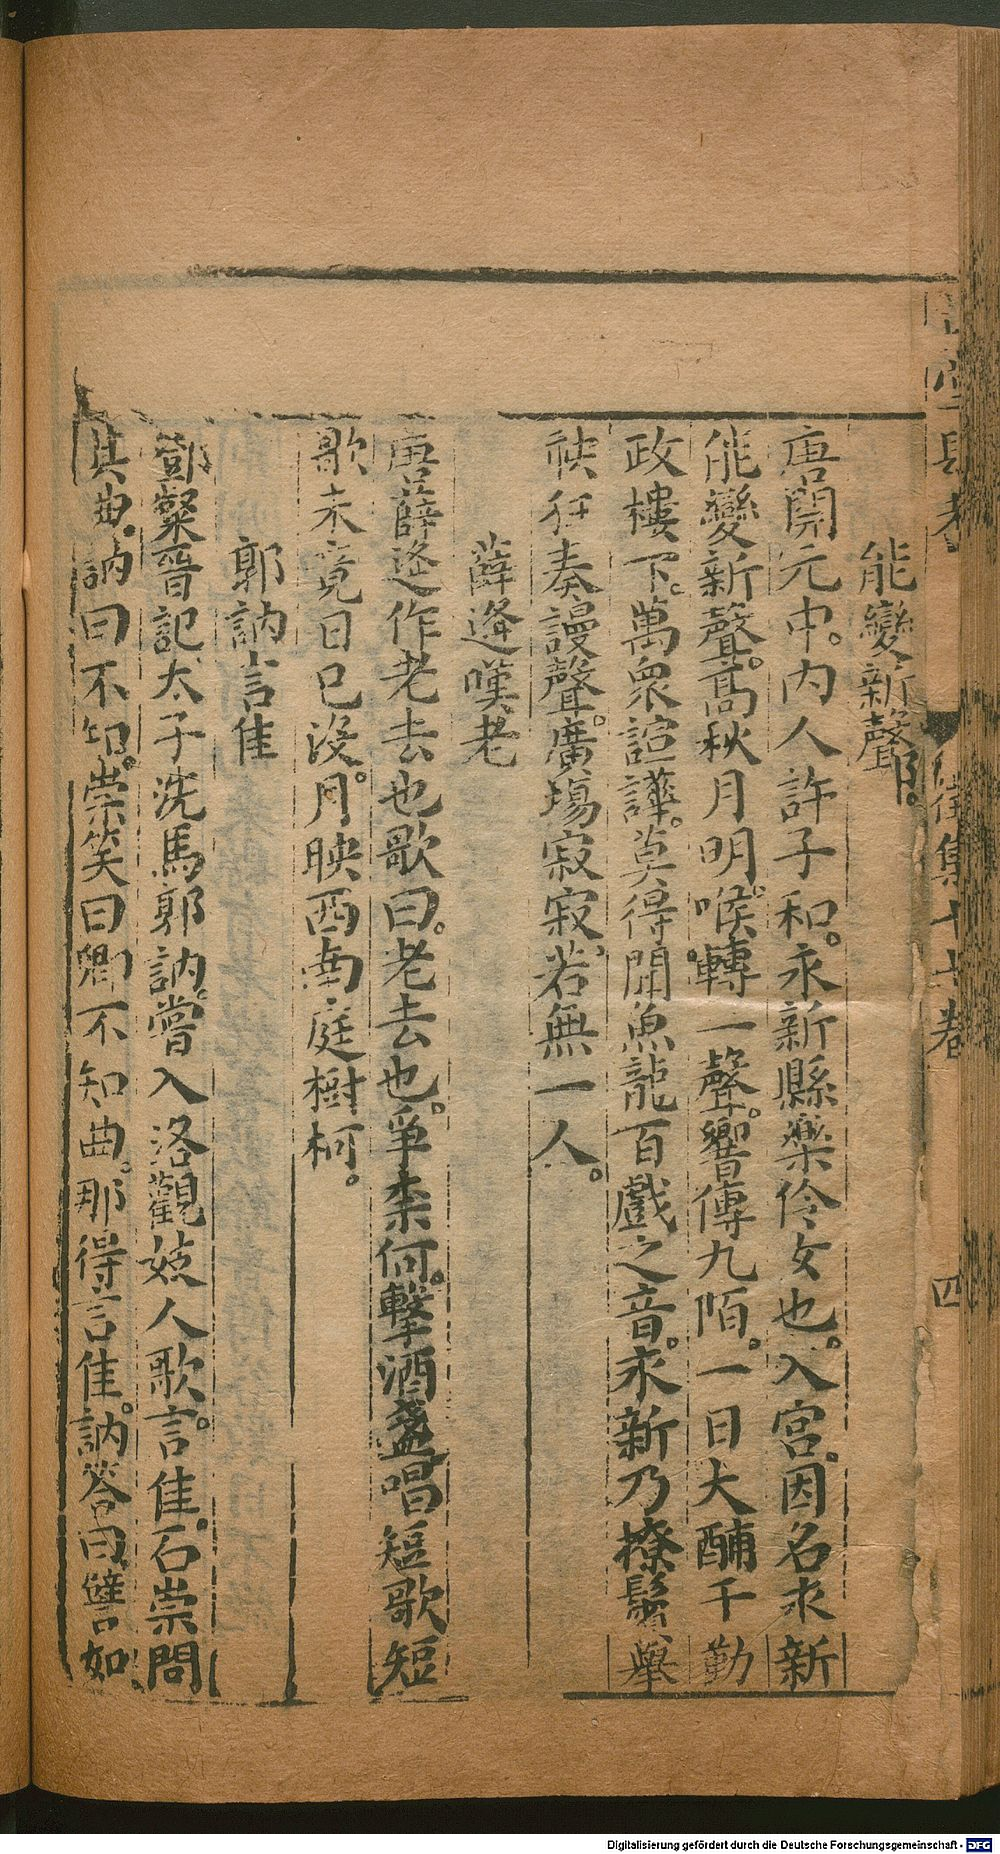 能變新聲
唐開元中。內人許子和。永新縣樂伶女也。入宮。因名永新
能變新聲。高秋月明。喉轉一聲。響傳九陌。一日大酺于勤
政樓下。萬衆諠譁。莫得聞魚龍百戲之音。永新乃撩鬢舉
袂。狂奏謾聲。廣場寂寂。若無一人。
薛逢嘆老
唐薛逢作老去也歌曰。老去也。爭柰何。擊酒盞唱短歌短
歌未竟日已沒。月映西南庭樹柯。
郭訥言佳
鄧粲晉記太子洗馬郭訥。嘗入洛觀妓人歌。言佳。石崇問
其曲。訥曰不知。崇笑曰卿不知曲。那得言佳。訥答曰譬如
徵集十七卷
四
Digitalisierung gefördert durch die Deutsche Forschungsgemeinschaft - DFG